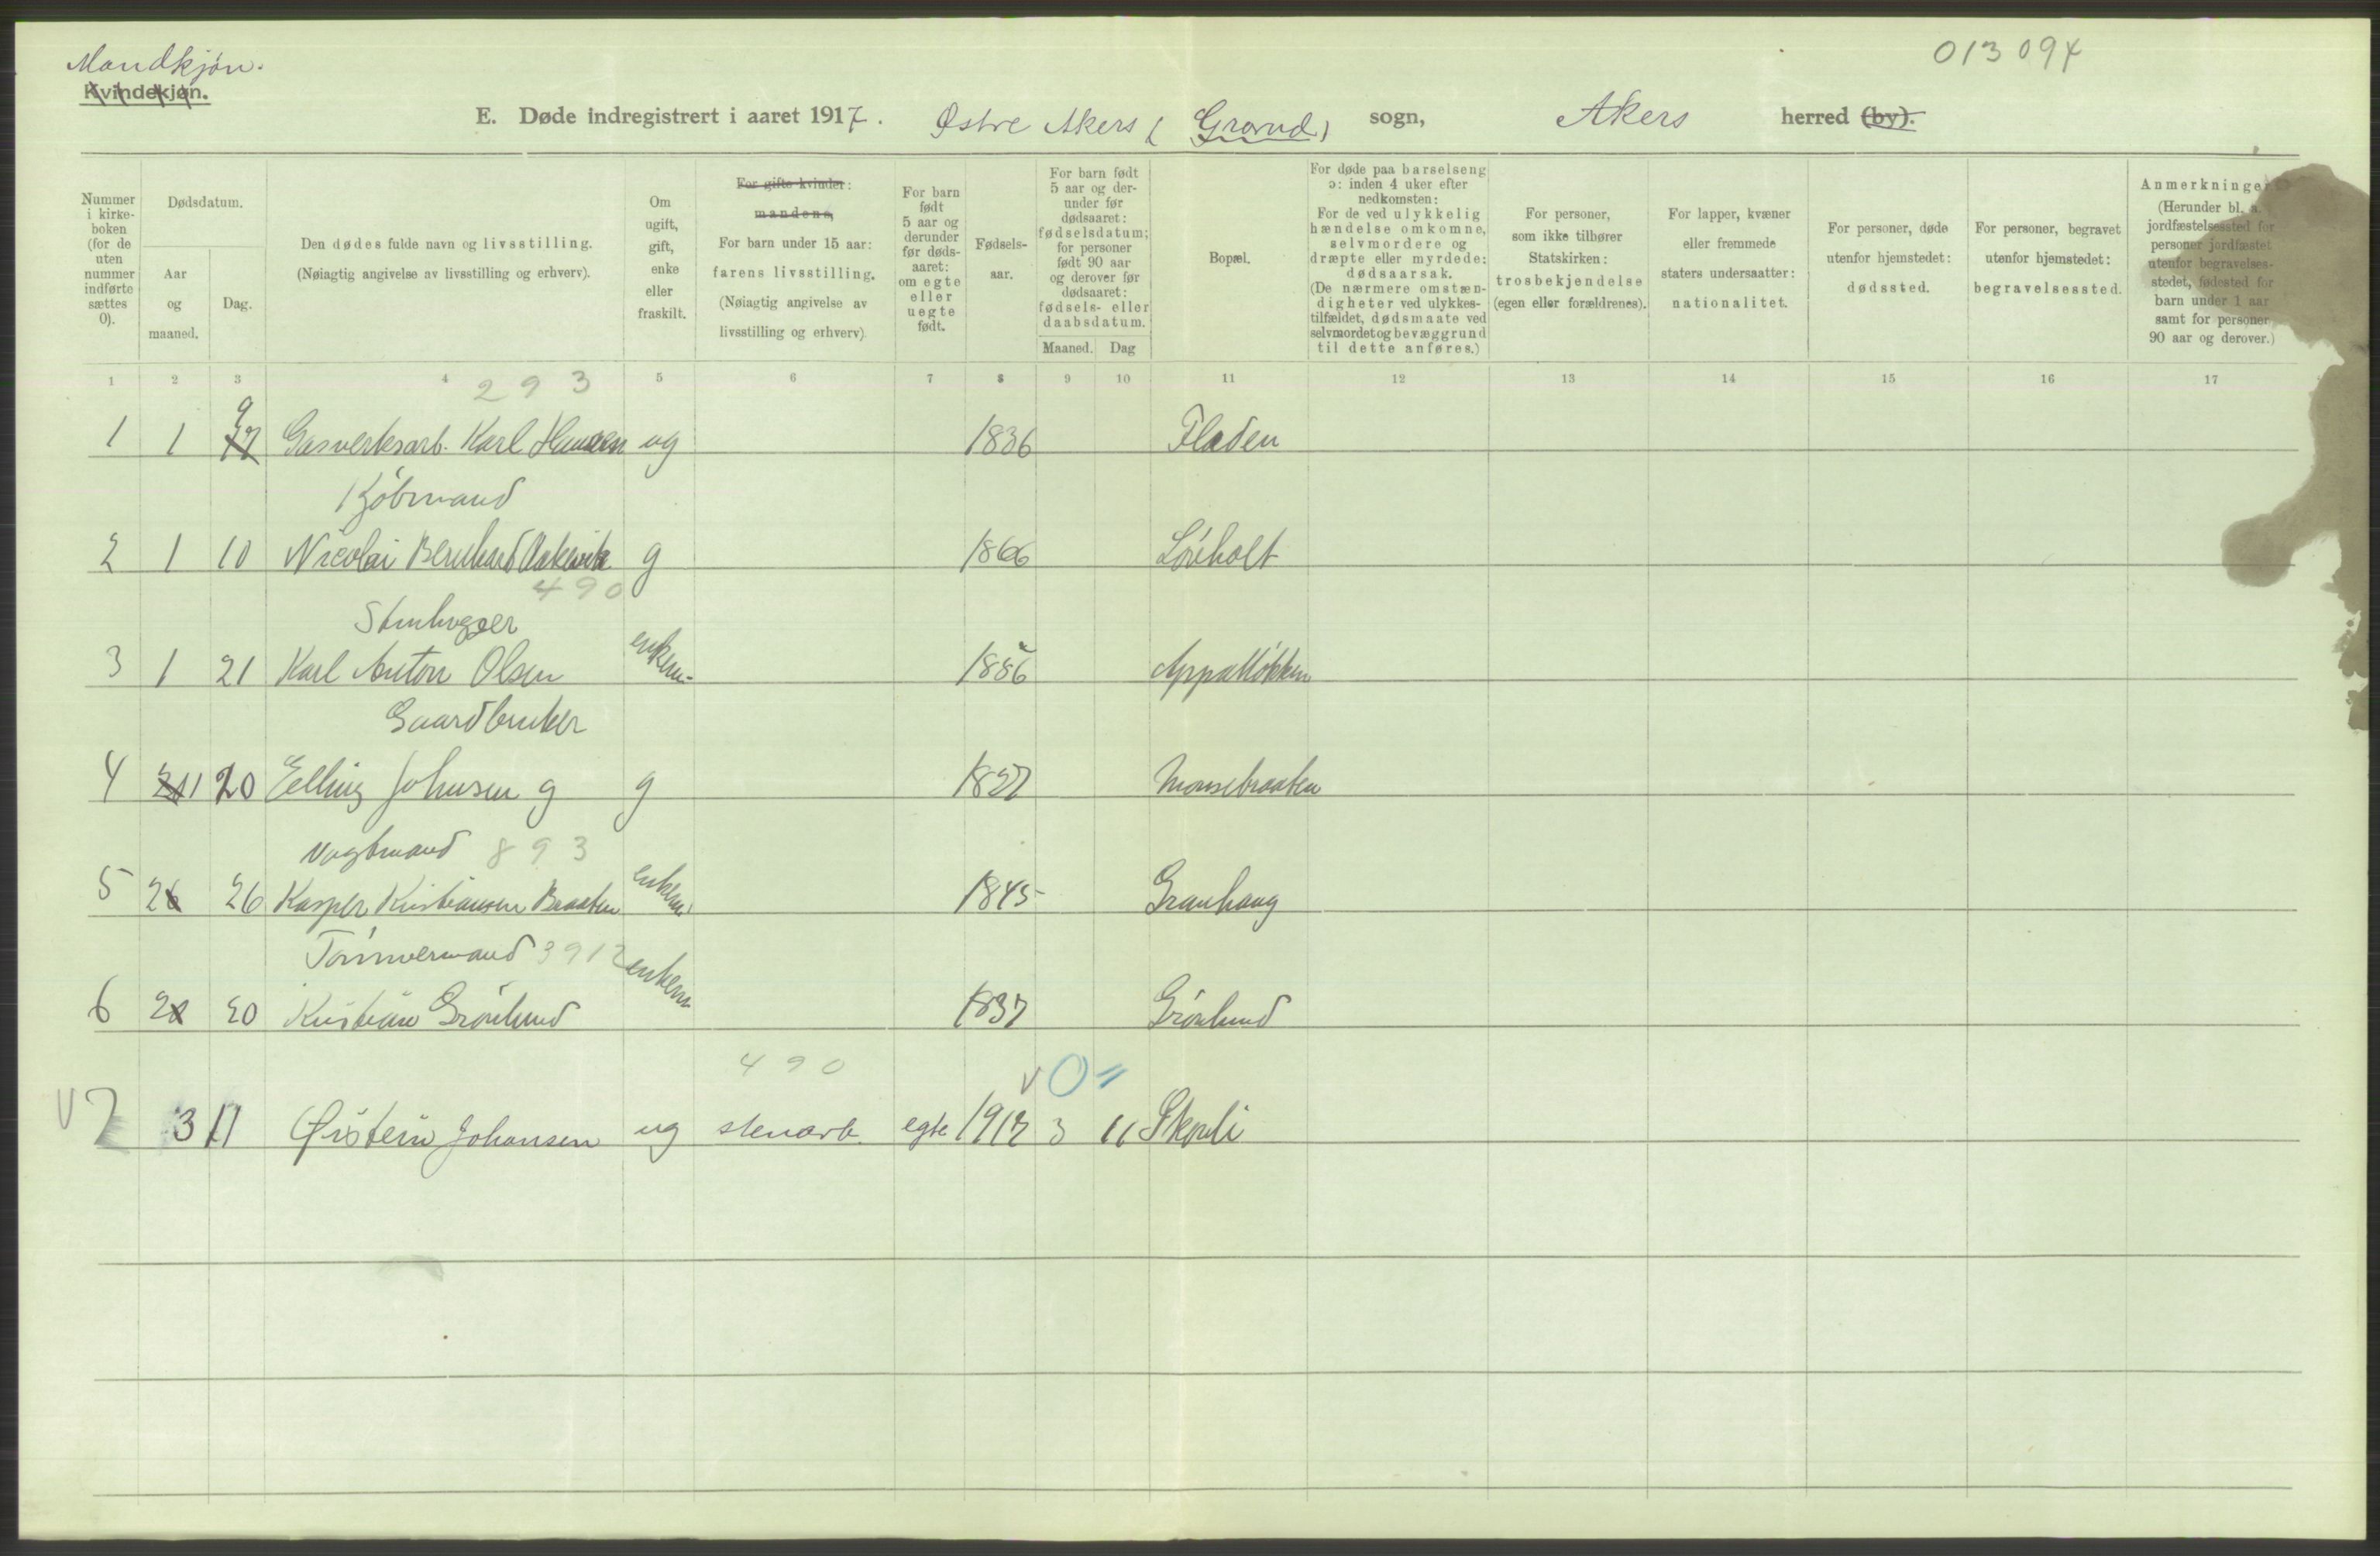 Mandkjøn.
Kvindekjøn.
013 094
E. Døde indregistrert i aaret 1917. Østre Akers (Grorud) sogn, Akers herred (by).
Nummer i kirkeboken (for de uten nummer indførte sættes 0).
Dødsdatum.
Aar og maaned.
Dag.
Den dødes fulde navn og livsstilling.
(Nøiagtig angivelse av livsstilling og erhverv).
Om ugift, gift, enke eller fraskilt.
For gifte kvinder: mandens,
For barn under 15 aar: farens livsstilling.
(Nøiagtig angivelse av livsstilling og erhverv).
For barn født 5 aar og derunder før dødsaaret: om egte eller uegte født.
Fødselsaar.
For barn født 5 aar og derunder før dødsaaret: fødselsdatum; for personer født 90 aar og derover før dødsaaret: fødsels- eller daabsdatum.
Maaned. Dag
Bopæl.
For døde paa barselseng ɔ: inden 4 uker efter nedkomsten:
For de ved ulykkelig hændelse omkomne, selvmordere og dræpte eller myrdede: dødsaarsak.
(De nærmere omstændigheter ved ulykkestilfældet, dødsmaate ved selvmordet og bevæggrund til dette anføres.)
For personer, som ikke tilhører Statskirken: trosbekjendelse (egen eller forældrenes).
For lapper, kvæner eller fremmede staters undersaatter: nationalitet.
For personer, døde utenfor hjemstedet: dødssted.
For personer, begravet utenfor hjemstedet: begravelsessted.
Anmerkninger.
(Herunder bl. a. jordfæstelsessted for personer jordfæstet utenfor begravelsesstedet, fødested for barn under 1 aar samt for personer 90 aar og derover.)
1 2 3 4 5 6 7 8 9 10 11 12 13 14 15 16 17
293
9
1 1 Gasverksarb. Karl Hansen ug 1836 Fladen
Kjøbmand
2 1 10 Nicolai Bernhard g 1866 Lørholt
490
Stenhugger
3 1 21 Karl Anton Olsen enkem. 1886
Gaardbruker
4 11 20 Elling Johnsen g g 1827 Monsebraaten
Vagtmand 893
5 2 26 Kasper Kristiansen Braaten enkem 1845 Granhaug
Tømmermand 3912
6 2 20 Kristian Grønlund enkem 1837 Grønlund
490
V 0 =
V 7 3 11 Øistein Johansen ug stenarb. egte 1917 3 11 Skouli